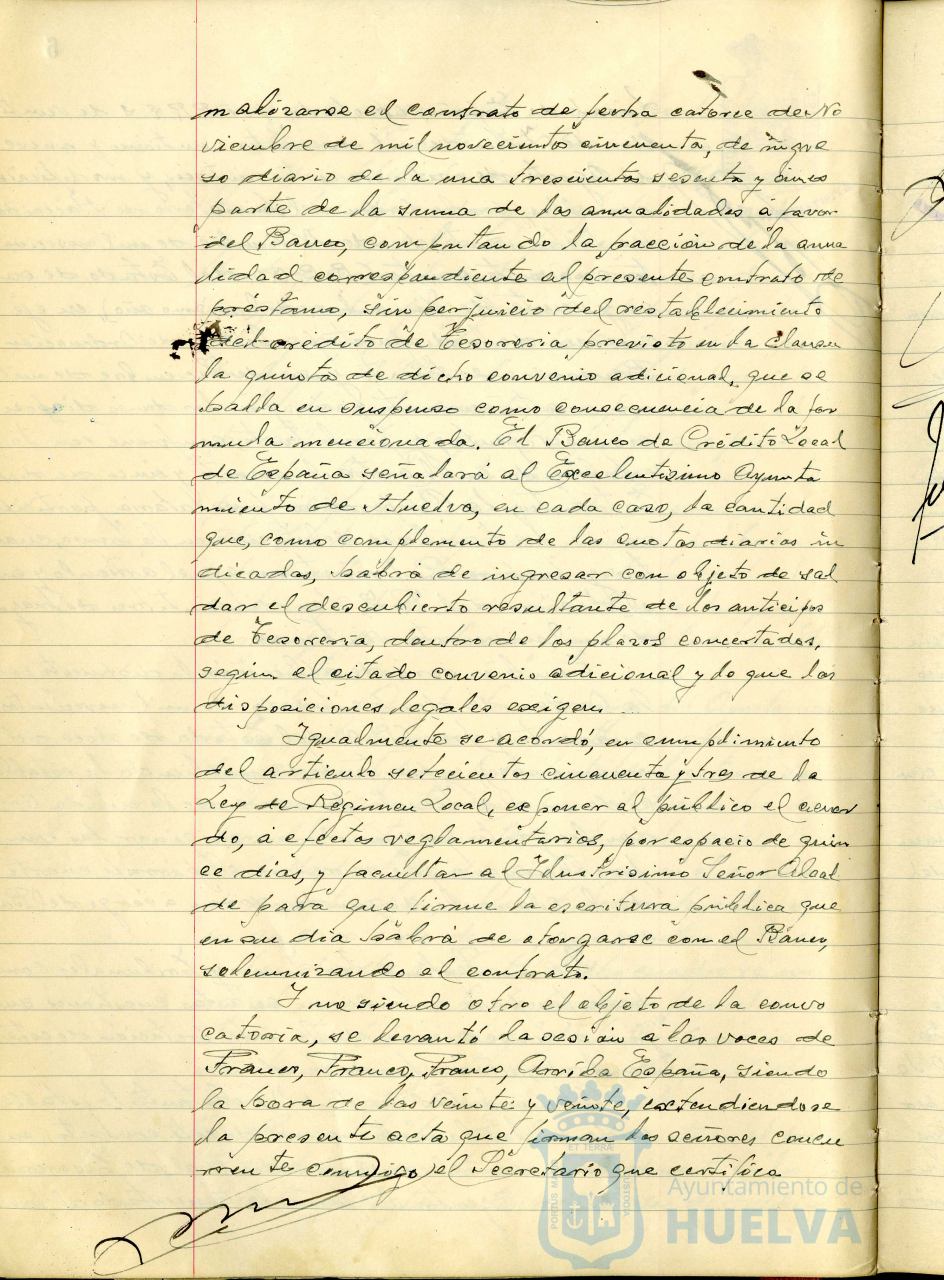 malizarse el contrato de fecha catorce de No
viembre de mil novecientos cincuenta, de ingre
so diario de la una trescientos sesenta y cinco
parte de la suma de las anualidades á favor
del Banco, computando la fracción de la anua
lidad correspondiente al presente contrato de
préstamo, sin perjuicio del restablecimiento
del crédito de Tesoreria previsto en la Clausu
la quinta de dicho convenio adicional, que se
halla en suspenso como consecuencia de la for
mula mencionada. El Banco de Crédito Local
de España señalará al Excelentisimo Ayunta
miento de Huelva, en cada caso, la cantidad
que, como complemento de las cuotas diarias in
dicadas, habrá de ingresar con objeto de sal
dar el descubierto resultante de los anticipos
de Tesoreria, dentro de los plazos concertados,
según el citado convenio adicional y lo que las
disposiciones legales exigen.
Igualmente se acordó, en cumplimiento
del articulo setecientos cincuenta y tres de la
Ley de Regimen Local, exponer al público el acuer
do, á efectos reglamentarios, por espacio de quin
ce dias, y facultar al Ilustrisimo Señor Alcal
de para que firme la escritura pública que
en su dia habrá de otorgarse con el Banco,
solemnizando el contrato.
I no siendo otro el objeto de la convo
catoria, se levantó la sesión á las voces de
Franco, Franco, Franco, Arriba España, siendo
la hora de las veinte y veinte, extendiendose
la presente acta que firman los señores concu
rrente conmigo el Secretario que certifica
PORTUS MARIS ET TERRAE CUSTODIA
Ayuntamiento de
HUELVA